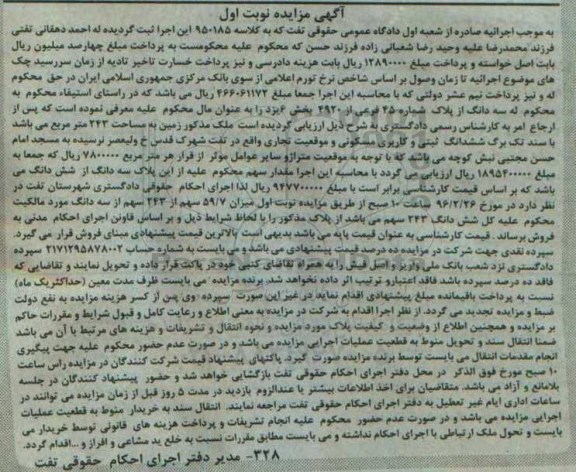 آگهی مزایده نوبت اول
به موجب اجرائیه صادره از شعبه اول دادگاه عمومی حقوقی تفت که به کلاسه ۹۵۰۱۸۵ این اجرا ثبت گردیده له احمد دهقانی تفتی
فرزند محمدرضا علیه وحید رضا شعبانی زاده فرزند حسن که محکوم علیه محکومست به پرداخت مبلغ چهارصد میلیون ریال
بابت اصل خواسته و پرداخت مبلغ ۱۲۸۹۰۰۰۰ ریال بابت هزینه دادرسی و نیز پرداخت خسارت تاخیر تادیه از زمان سررسید چک
های موضوع اجرائیه تا زمان وصول بر اساس شاخص نرخ تورم اعلامی از سوی بانک مرکزی جمهوری اسلامی ایران در حق محکوم
له و نیز پرداخت نیم عشر دولتی که با محاسبه این اجرا جمعا مبلغ ۴۶۶۰۶۱۱۷۲ ریال می باشد که در راستای استیفاء محکوم به
محکوم له سه دانگ از پلاک شماره ۴۵ فرعی از ۲۹۲۰ بخش ۶یزد را به عنوان مال محکوم علیه معرفی نموده است که پس از
ارجاع امر به کارشناس رسمی دادگستری به شرح ذیل ارزیابی گردیده است ملک مذکور زمین به مساحت ۲۴۳ متر مربع می باشد
با سند تک برگ ششدانگ ثبتی و کاربری مسکونی و موقعیت تجاری واقع در تفت شهرک قدس خ ولیعصر نرسیده به مسجد امام
حسن مجتبی نبش کوچه می باشد که با توجه به موقعیت متراژو سایر عوامل موثر از قرار هر متر مربع ۷۸۰۰۰۰۰ ریال که جمعا به
مبلغ ۱۸۹۵۴۰۰۰۰۰ ریال ارزیابی می گردد با محاسبه این اجرا مقدار سهم محکوم علیه از این پلاک سه دانگ از شش دانگ می
باشد که بر اساس قیمت کارشناسی برابر است با مبلغ ۹۴۷۷۰۰۰۰۰ ریال لذا اجرای احکام حقوقی دادگستری شهرستان تفت در
نظر دارد در مورخ ۹۶/۲/۲۶ ساعت ۱۰ صبح از طریق مزایده نوبت اول میزان ۵۹/۷ سهم از ۲۴۳ سهم از سه دانگ مورد مالکیت
محکوم علیه کل شش دانگ ۲۴۳ سهم می باشد از پلاک مذکور را با لحاظ شرایط ذیل و بر اساس قانون اجرای احکام مدنی به
فروش برساند . قیمت کارشناسی به عنوان قیمت پایه می باشد بدیهی است بالاترین قیمت پیشنهادی مبنای فروش قرار می گیرد.
سپرده نقدی جهت شرکت در مزایده ده درصد قیمت پیشنهادی می باشد و می بایست به شماره حساب ۲۱۷۱۲۹۵۸۷۸۰۰۲ سپرده
دادگستری نزد شعب بانک ملی واریز و اصل فیش را به همراه تقاضای کتبی خود در پاکت قرار داده و تحویل نمایند و تقاضایی که
فاقد ده درصد سپرده باشد فاقد اعتبارو ترتیب اثر داده نخواهد شد. برنده مزایده می بایست ظرف مدت معین (حداکثریک ماه)
نسبت به پرداخت باقیمانده مبلغ پیشنهادی اقدام نماید در غیر این صورت سپرده وی پس از کسر هزینه مزایده به نفع دولت
ضبط و مزایده تجدید می گردد. از نظر اجرا اقدام به شرکت در مزایده به معنی اطلاع و رعایت کامل و قبول شرایط و مقررات حاکم
بر مزایده و همچنین اطلاع از وضعیت و کیفیت پلاک مورد مزایده و نحوه انتقال و تشریفات و هزینه های مرتبط با آن می باشد
ضمنا انتقال سند و تحویل منوط به قطعیت عملیات اجرایی مزایده می باشد و در صورت عدم حضور محکوم علیه جهت پیگیری
انجام مقدمات انتقال می بایست توسط برنده مزایده صورت گیرد. پاکتهای پیشنهاد قیمت شرکت کنندگان در مزایده راس ساعت
۱۰ صبح مورخ فوق الذکر در محل دفتر اجرای احکام حقوقی تفت بازگشایی خواهد شد و حضور پیشنهاد کنندگان در جلسه
بلامانع و آزاد می باشد. متقاضیان برای اخذ اطلاعات بیشتر یا عندالزوم بازدید در مدت ۵ روز قبل از زمان مزایده می توانند در
ساعات اداری ایام غیر تعطیل به دفتر اجرای احکام حقوقی تفت مراجعه نمایند. انتقال سند به خریدار منوط به قطعیت عملیات
اجرایی مزایده می باشد و در صورت عدم حضور محکوم علیه انجام تشریفات و پرداخت هزینه های قانونی توسط خریدار می
بایست و تحویل ملک ارتباطی با اجرای احکام نداشته و می بایست مطابق مقررات نسبت به خلع ید مشاعی و افراز و ...اقدام گردد.
۳۲۸- مدیر دفتر اجرای احکام حقوقی تفت